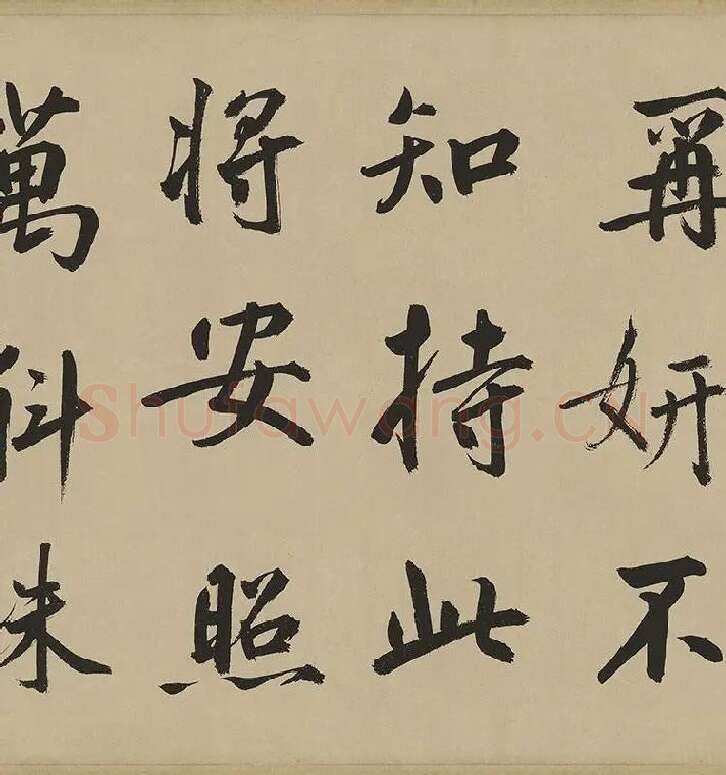 再妍不
知持此
將安照
萬
Shufawang.cn